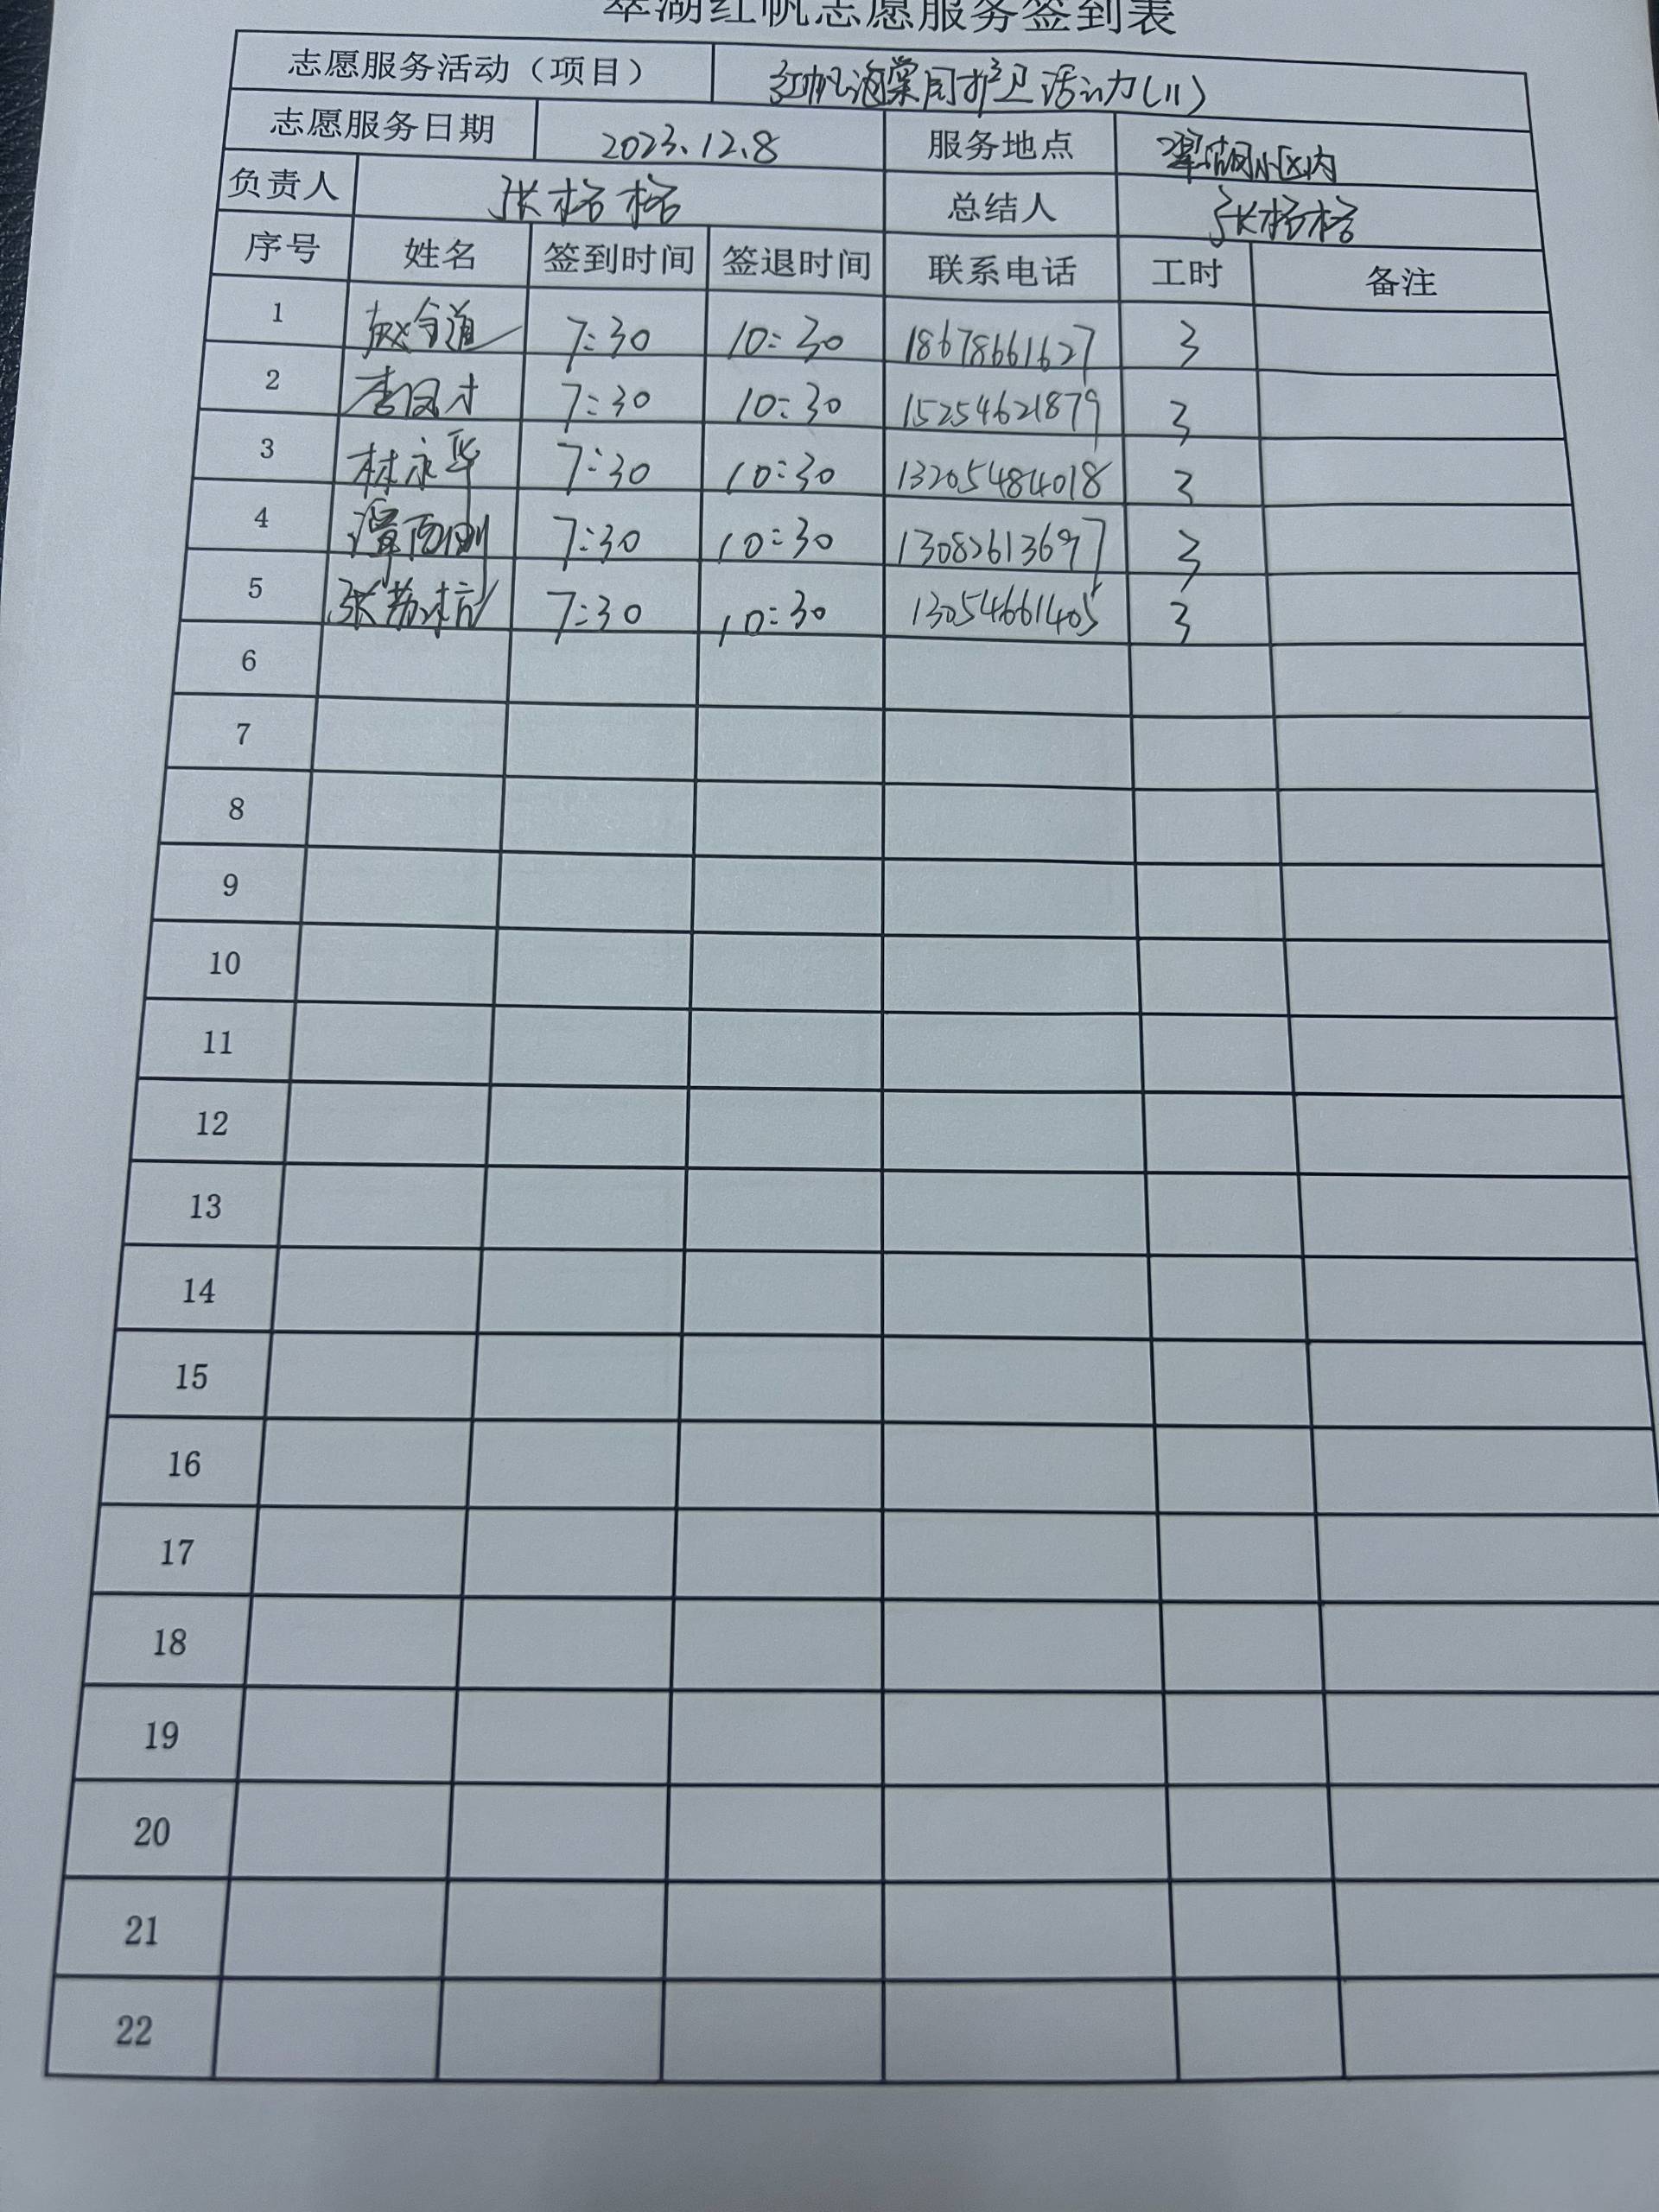 翠湖红帆志愿服务签到表
志愿服务活动（项目） 红帆海棠园护卫活动(11)
志愿服务日期 2023.12.8 服务地点 翠湖小区内
负责人 张格格 总结人 张格格
序号 姓名 签到时间 签退时间 联系电话 工时 备注
1 赵全道 7:30 10:30 18678661627 3
2 李凤才 7:30 10:30 15254621879 3
3 林永华 7:30 10:30 13205484018 3
4 7:30 10:30 13082613697 3
5 7:30 10:30 13054661405 3
6
7
8
9
10
11
12
13
14
15
16
17
18
19
20
21
22